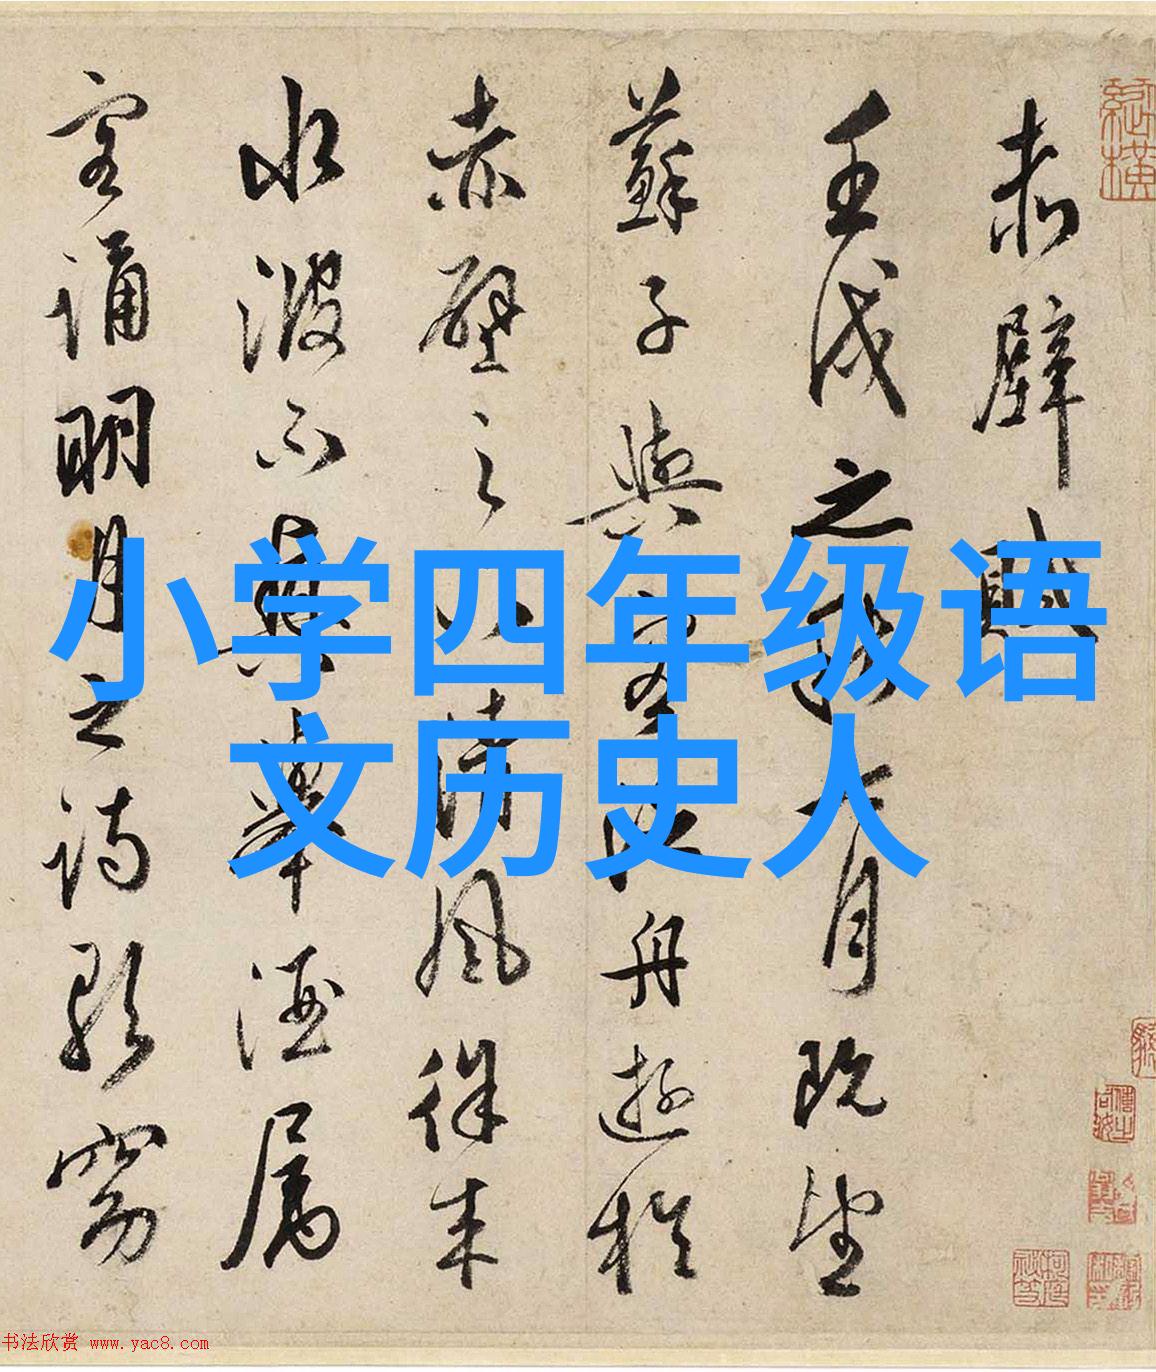 小学四年级语
文历史人
赤壁賦
壬戌之秋七月既望
蘇子與客泛舟遊於
赤壁之下清風徐来
水波不興舉酒属
客誦明月之詩歌窈
书法欣赏 www.yac8.com